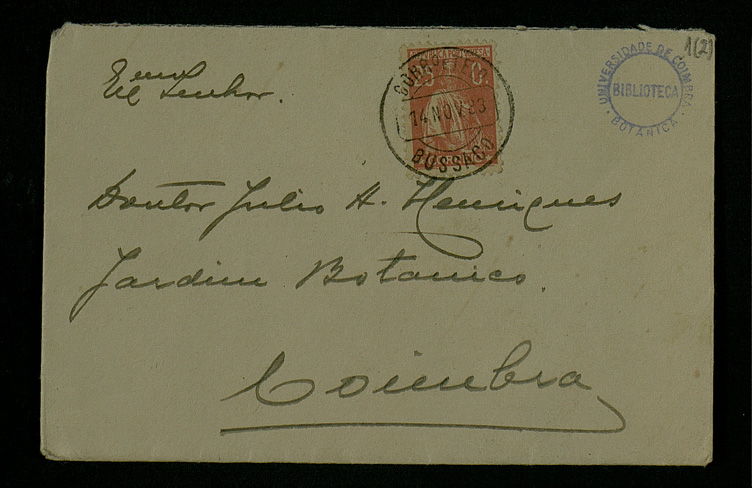 Exmo Senhor.
Doutor Julio A. Henriques
Jardim Botanico.
Coimbra
CORREIO
14 NOV 23
BUSSACO
C.
UNIVERSIDADE DE COIMBRA
BIBLIOTECA
BOTÂNICA
1(2)